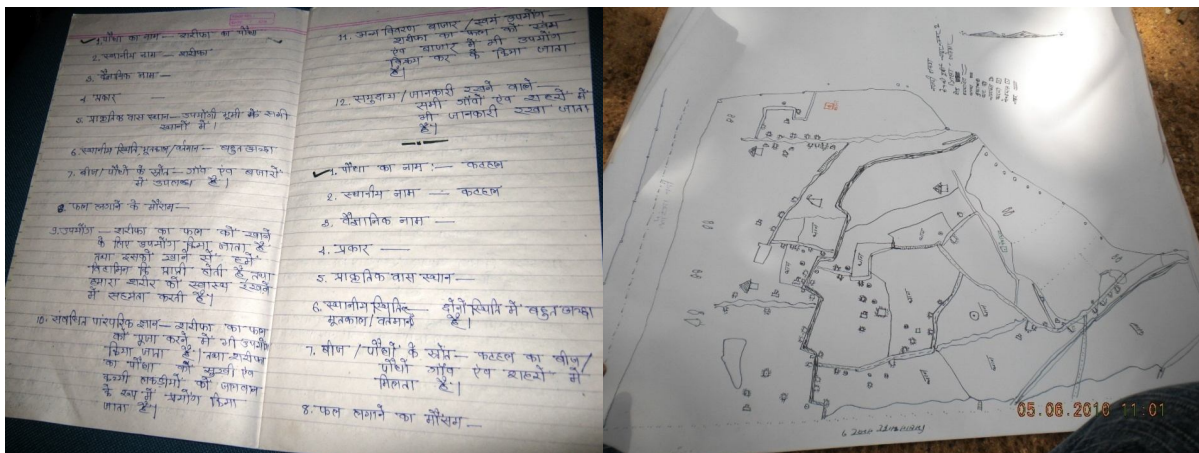 1. पौधा का नाम — शरीफा का पौधा
2. स्थानीय नाम — शरीफा
3. वैज्ञानिक नाम —
4. प्रकार —
5. प्राकृतिक वास स्थान — उपयोगी भूमी में सभी
स्थानों में।
6. स्थानीय स्थिति भूतकाल/वर्तमान — बहुत अच्छा
7. बीज/पौधों के स्रोत — गाँव एंव बाजारों
में उपलब्ध है।
8. फल लगाने के मौसम —
9. उपयोग — शरीफा का फल को खाने
के लिए उपयोग किया जाता है
तथा इसको खाने से हमें
विटामिन कि प्राप्ती होती है तथा
हमारा शरीर को स्वास्थ रखने
में सहायता करती है।
10. संबंधित पारंपरिक ज्ञान — शरीफा का फल
को पूजा करने में भी उपयोग
किया जाता है। तथा शरीफा
का पौधा की सुखी एंव
लकड़ीयों को जलावन
के रूप में प्रयोग किया
जाता है।
11. अन्य विवरण बाजार/स्वयं उपयोग —
शरीफा का फल को स्वयं
एंव बाजार में भी उपयोग
विक्रय कर के किया जाता
है।
12. समुदाय/जानकारी रखने वाले —
सभी गाँवो एंव शहरों में
भी जानकारी रखा जाता
है।
1. पौधा का नाम :— कटहल
2. स्थानीय नाम — कटहल
3. वैज्ञानिक नाम —
4. प्रकार —
5. प्राकृतिक वास स्थान —
6. स्थानीय स्थिति — दोनों स्थिति में बहुत अच्छा
भूतकाल/वर्तमान है।
7. बीज/पौधों के स्रोत — कटहल का बीज/
पौधों गाँव एंव शहरों में
मिलता है।
8. फल लगाने का मौसम —
05.06.2010 11:01